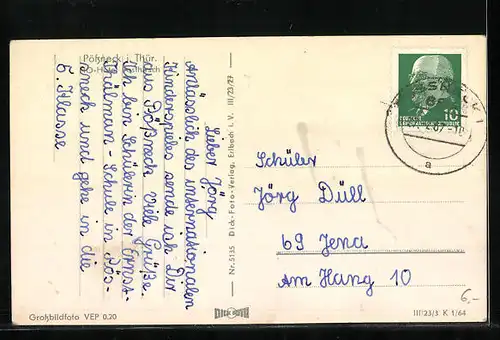 Pößneck i. Thür.
Lieber Jörg
Anlässlich des internationalen
Kindertages sende ich Dir
aus Pößneck viele Grüße.
Ich bin Schülerin der Ernst-
Thälmann-Schule in Pös-
sneck und gehe in die
5. Klasse
Nr. 5135 Dick-Foto-Verlag, Erlbach i. V. III/23/27
DICK FOTO
10
DEUTSCHE
DEMOKRATISCHE REPUBLIK
a
Schüler
Jörg Düll
69 Jena
Am Hang 10
6,-
Großbildfoto VEP 0.20
III/23/3 K 1/64